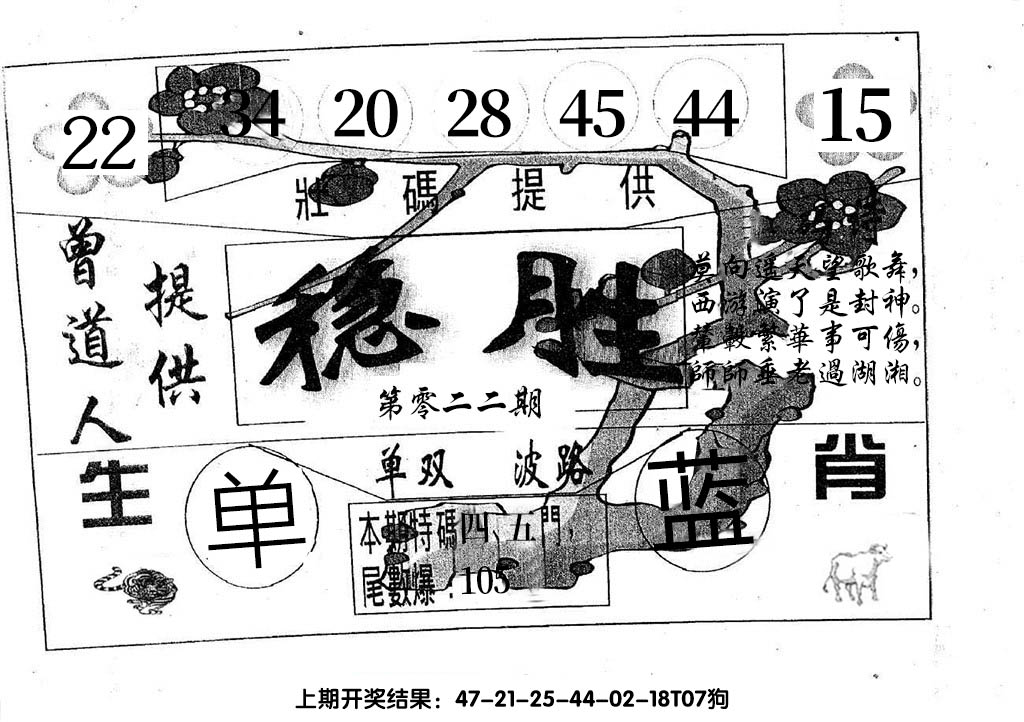 22 34 20 28 45 44 15
壯碼提供
特
曾道人
提供
稳胜
第零二二期
莫向遥天望歌舞，
西游演了是封神。
輦轂繁華事可傷，
師師垂老過湖湘。
单双 波路
生
单
蓝
肖
本期特碼四、五門，
尾數爆：105
上期开奖结果：47-21-25-44-02-18T07狗